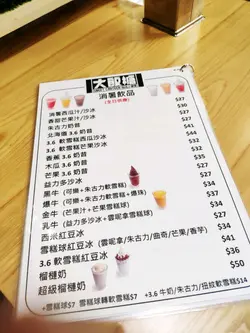 大眾囍
消暑飲品
(全日供應)
消暑西瓜汁/沙冰 $27
香甜芒果汁/沙冰 $27
朱古力奶昔 $30
北海道 3.6 奶昔
3.6 軟雪糕西瓜沙冰
3.6 軟雪糕芒果沙冰
香蕉 3.6 奶昔
木瓜 3.6 奶昔
芒果 3.6 奶昔
益力多沙冰 $27
黑牛 (可樂+朱古力軟雪糕)
爆牛 (可樂+朱古力軟雪糕+爆珠)
金牛 (芒果汁+芒果雪糕球) $34
乳牛 (益力多沙冰+雲呢拿雪糕球) $34
西米紅豆冰 $27
雪糕球紅豆冰 (雲呢拿/朱古力/曲奇/芒果/香芋) $34
3.6 軟雪糕紅豆冰
榴槤奶 $36
超級榴槤奶 $50
+雪糕球$7 雪糕球轉軟雪糕$7 +3.6 牛奶/朱古力/扭紋軟雪糕$14